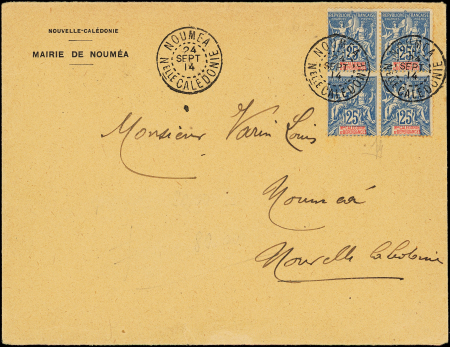 NOUVELLE-CALÉDONIE
MAIRIE DE NOUMÉA
NOUMEA
24
SEPT
14
Nelle CALEDONIE
NOUMEA
SEPT
14
Nelle CALEDONIE
NOUMEA
SEPT
14
Nelle CALEDONIE
RÉPUBLIQUE FRANÇAISE
25
25
25
25
Monsieur Varin Louis
Nouméa
Nouvelle Calédonie